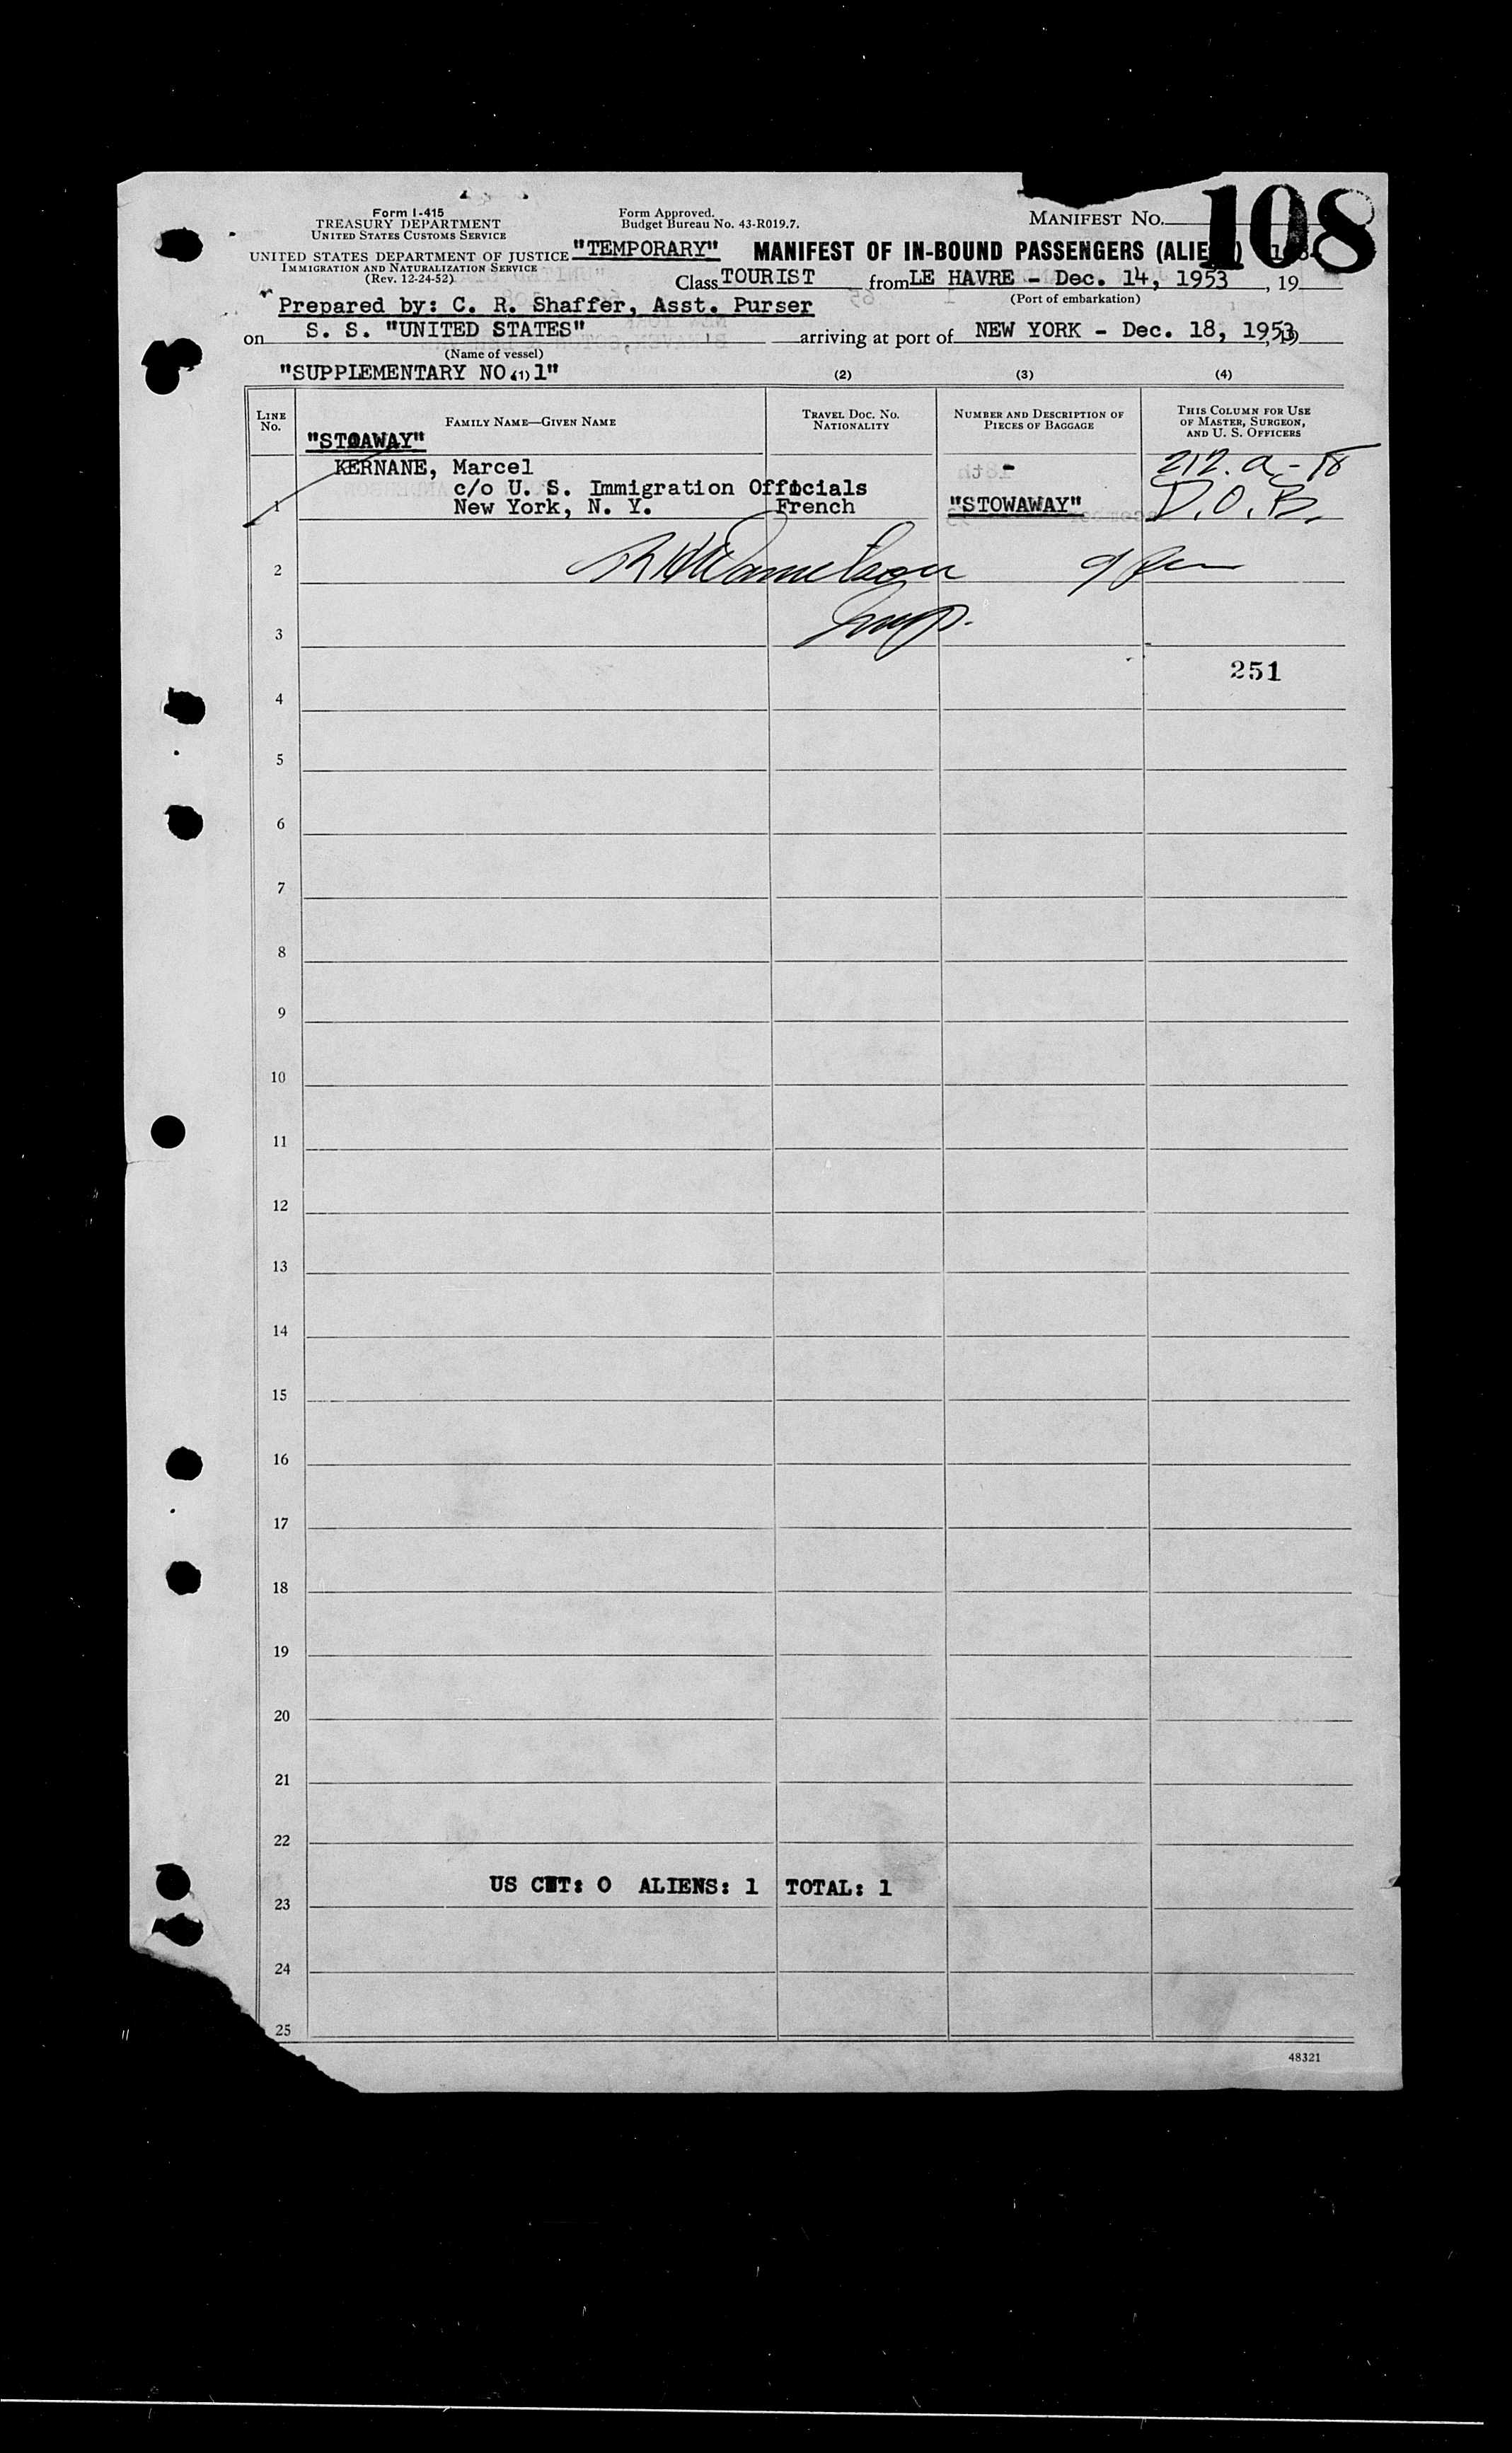 Form I-415
TREASURY DEPARTMENT
UNITED STATES CUSTOMS SERVICE
UNITED STATES DEPARTMENT OF JUSTICE
IMMIGRATION AND NATURALIZATION SERVICE
(Rev. 12-24-52)
Form Approved.
Budget Bureau No. 43-R019.7.
MANIFEST NO. 108
"TEMPORARY" MANIFEST OF IN-BOUND PASSENGERS (ALIE
Class TOURIST from LE HAVRE - Dec. 14, 1953, 19
(Port of embarkation)
Prepared by: C. R. Shaffer, Asst. Purser
on S. S. "UNITED STATES" arriving at port of NEW YORK - Dec. 18, 1953
(Name of vessel)
"SUPPLEMENTARY NO. 1"
(1) (2) (3) (4)
LINE No. FAMILY NAME—GIVEN NAME TRAVEL DOC. NO. NATIONALITY NUMBER AND DESCRIPTION OF PIECES OF BAGGAGE THIS COLUMN FOR USE OF MASTER, SURGEON, AND U. S. OFFICERS
"STOAWAY"
KERNANE, Marcel - 212.a-18
c/o U. S. Immigration Officials
1 New York, N. Y. French "STOWAWAY" D.O.B.
2
3 Insp.
251
4
5
6
7
8
9
10
11
12
13
14
15
16
17
18
19
20
21
22
US CIT: 0 ALIENS: 1 TOTAL: 1
23
24
25
48321